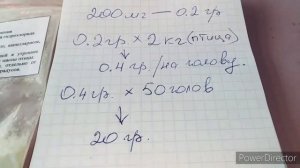 200 мг — 0.2 гр
0.2 гр. × 2 кг (птица)
↓
0.4 гр. / на голову.
0.4 гр. × 50 голов
↓
20 гр.
PowerDirector